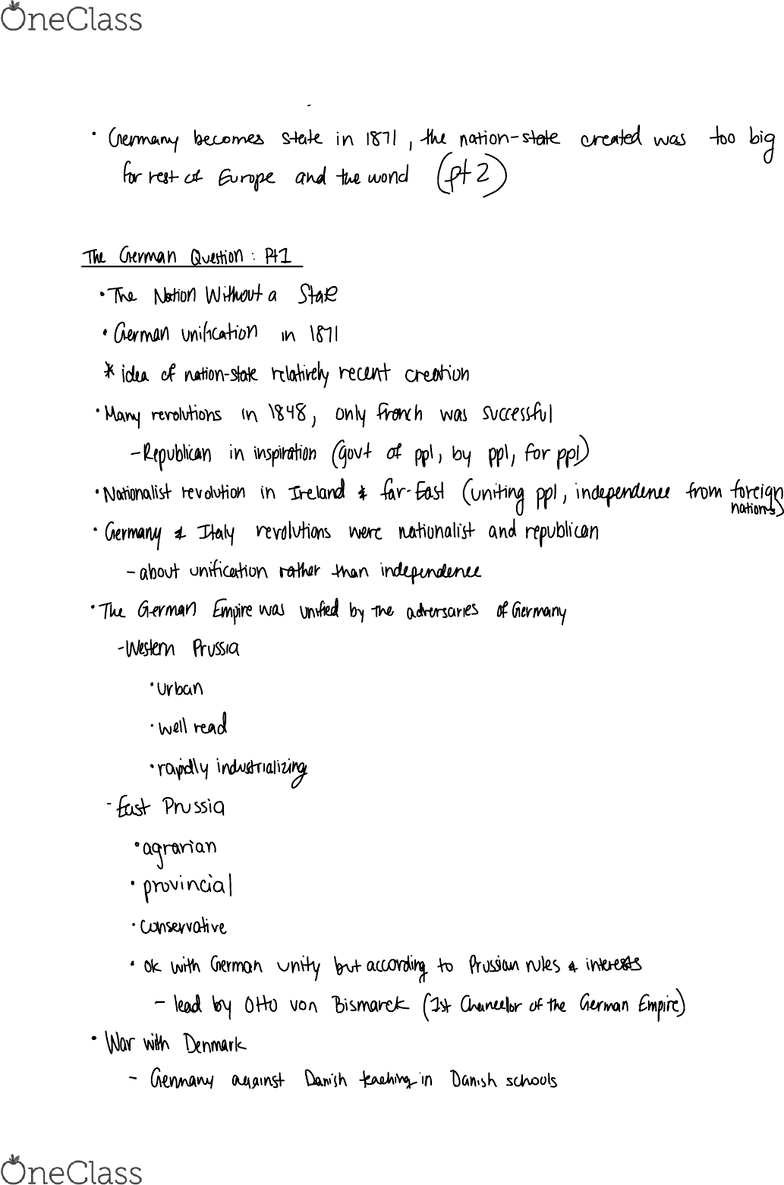 OneClass
• Germany becomes state in 1871, the nation-state created was too big
for rest of Europe and the world (pt 2)
The German Question: Pt 1
• The Nation Without a State
• German unification in 1871
* idea of nation-state relatively recent creation
• Many revolutions in 1848, only french was successful
- Republican in inspiration (govt of ppl, by ppl, for ppl)
• Nationalist revolution in Ireland & far-East (uniting ppl, independence from foreign
nations)
• Germany & Italy revolutions were nationalist and republican
- about unification rather than independence
• The German Empire was unified by the adversaries of Germany
- Western Prussia
• urban
• well read
• rapidly industrializing
- East Prussia
• agrarian
• provincial
• conservative
• ok with German unity but according to Prussian rules & interests
- lead by Otto von Bismarck (1st Chancelor of the German Empire)
• War with Denmark
- Germany against Danish teaching in Danish schools
OneClass